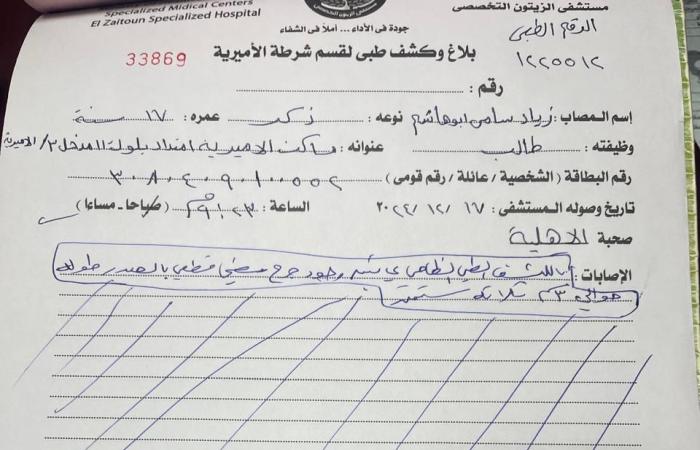 Specialized Medical Centers
El Zaitoun Specialized Hospital
مستشفى الزيتون التخصصى
جودة فى الأداء ... أملاً فى الشفاء
الرقم الطبي
١٢٢٥٥١٢
33869
بلاغ وكشف طبى لقسم شرطة الأميرية
رقم :
إسم المصاب : زياد سامى ابوهاشم نوعه : ذكر عمره : ١٧ سنة
وظيفته : طالب عنوانه : مساكن الاميرية امتداد بلوك المدخل ٢ / الاميرية
رقم البطاقة (الشخصية / عائلة / رقم قومى)
تاريخ وصوله المستشفى : ١٧ / ١٢ / ٢٠٢٢ الساعة : (صباحا - مساءا)
صحبة الاهلية
الإصابات : بالكشف الطبي الظاهري تبين وجود جرح قطعي بالصدر طوله
حوالي ٣ سم ثلاثة سنتيمتر